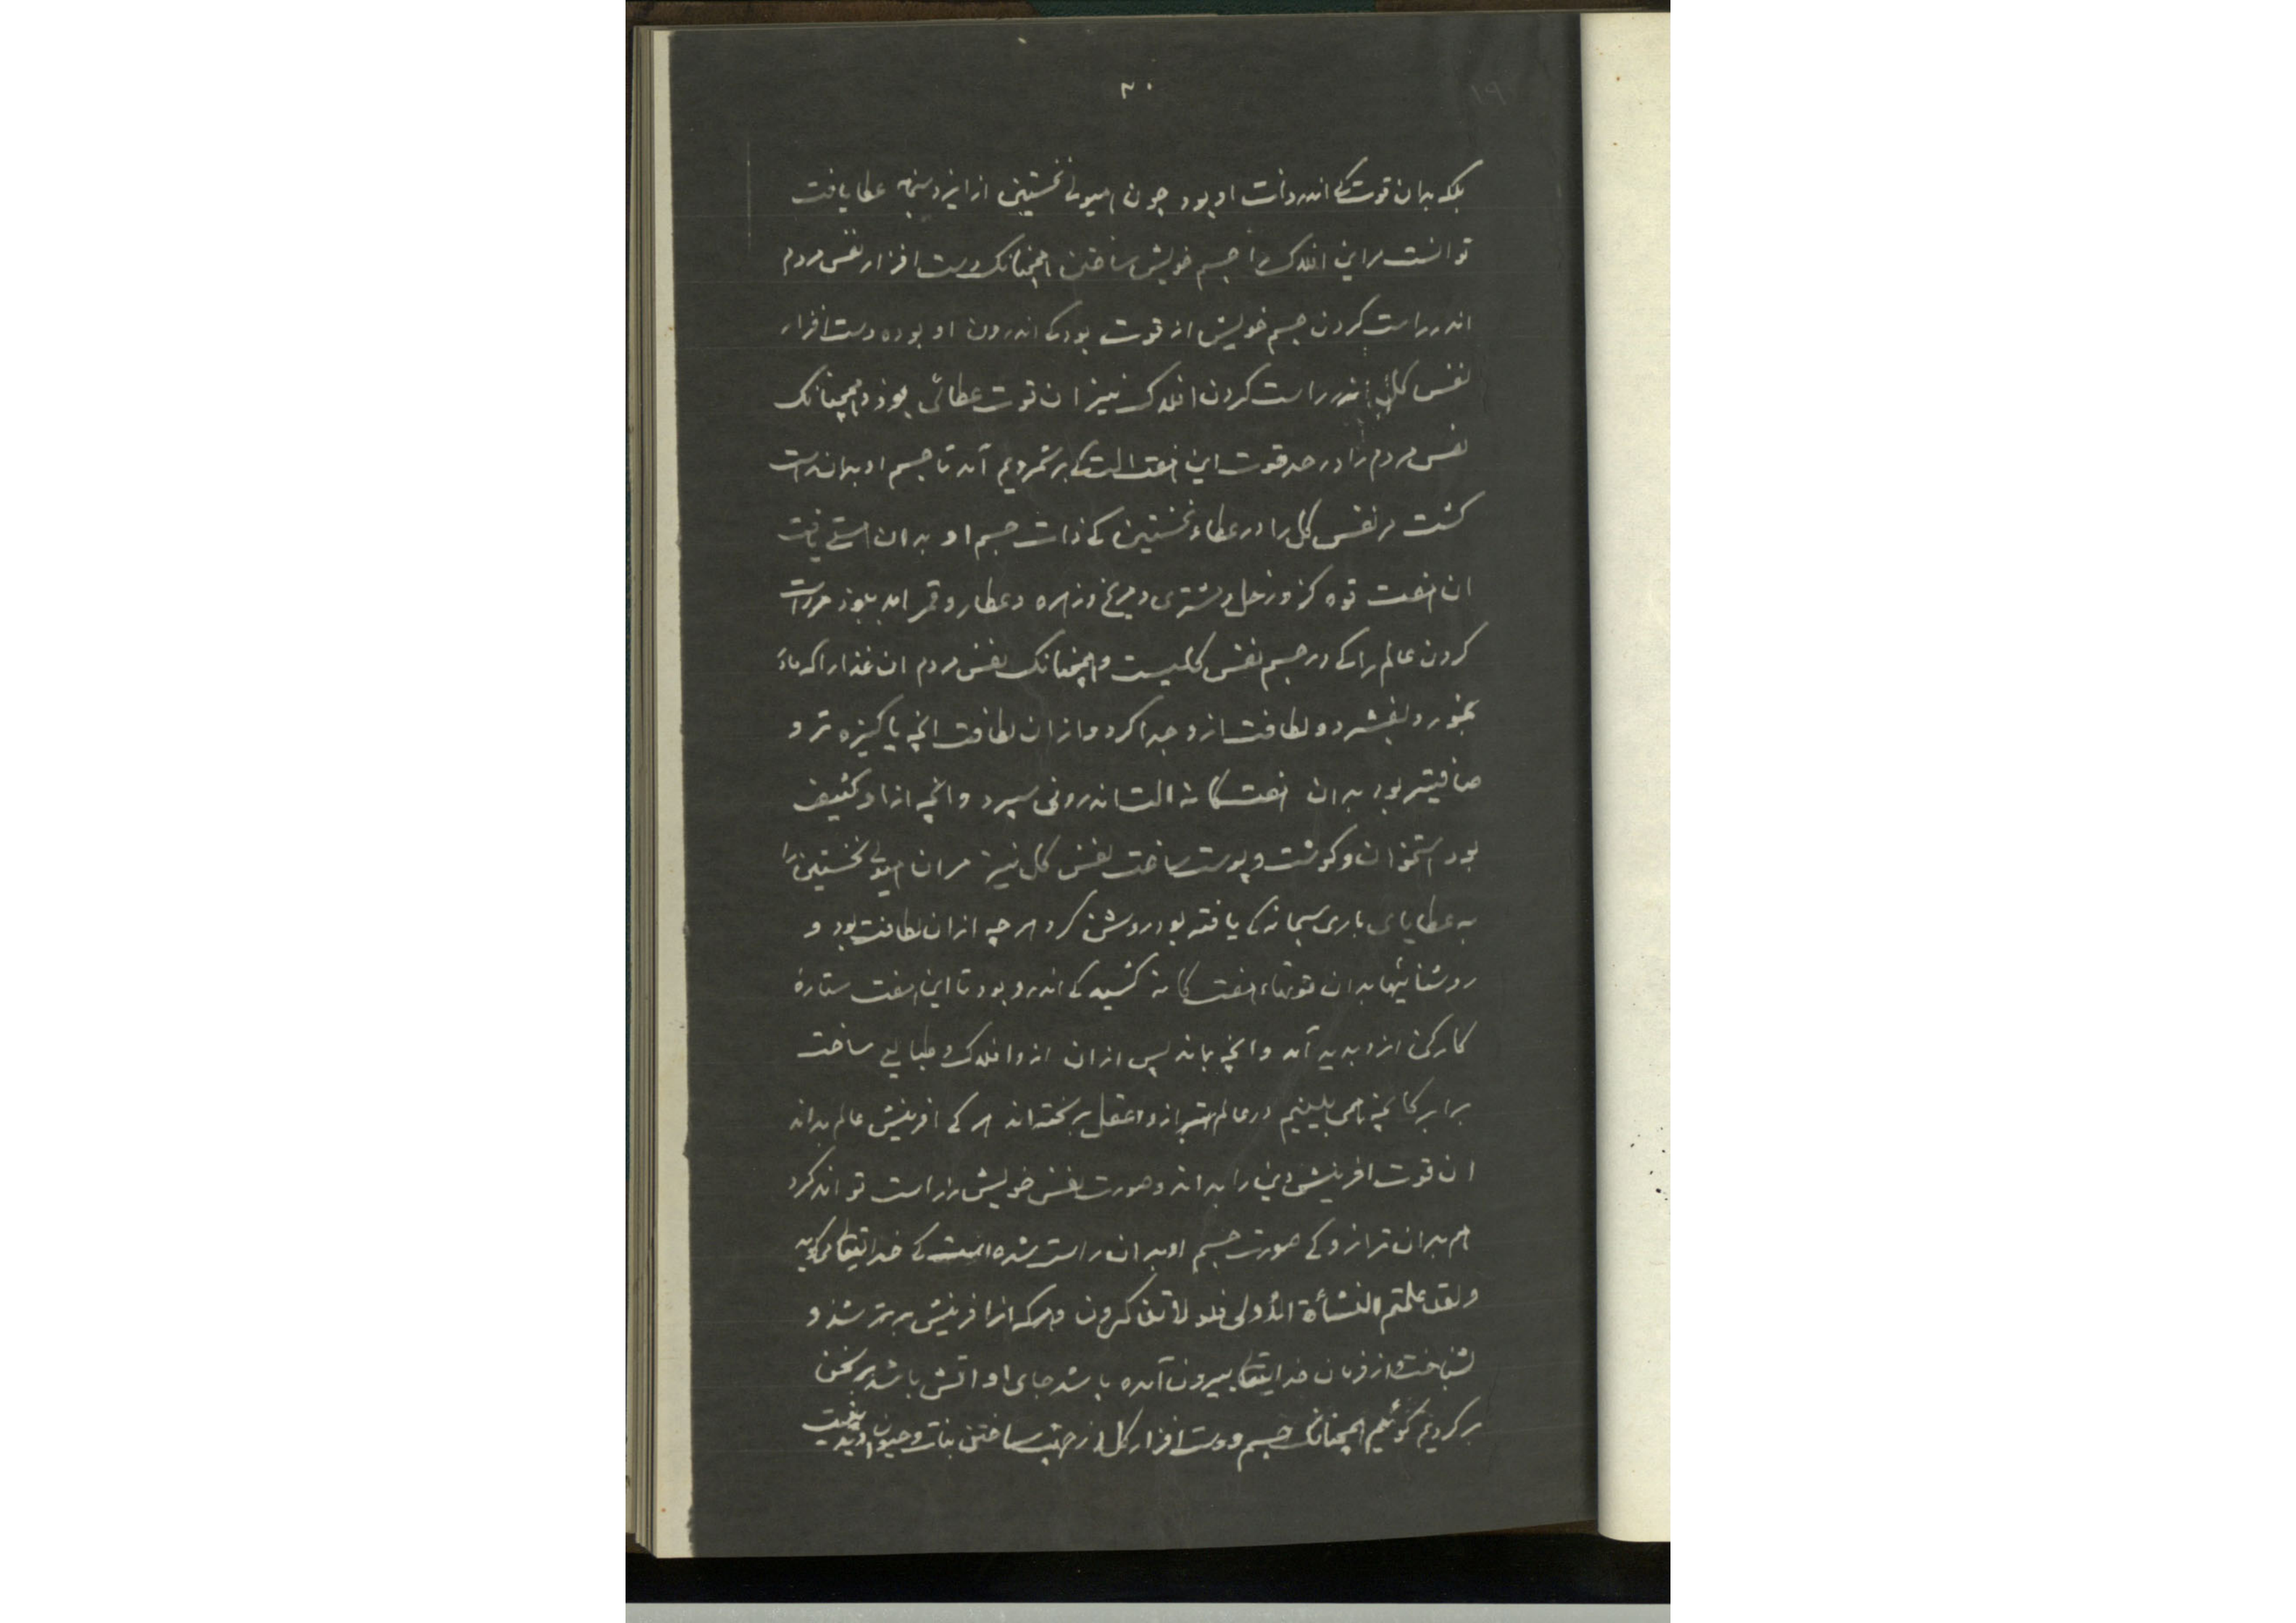 ۲۰
۱۹
بلکه بدان قوت کی اندر ذات او بود چون هیولی نخستین از ایزد سبحانه عطا یافت
توانست مر این افلاک را جسم خویش ساختن همچنانک دست افزار نفس مردم
اندر راست کردن جسم خویش از قوت بود کی اندرون او بوده دست افزار
نفس کلی اندر راست کردن افلاک نیز ان قوت عطائی بود و همچنانک
نفس مردم را در حد قوت این هفت الت کی برشمردیم آمد تا جسم او بدان راست
گشت مر نفس کل را در عطاء نخستین کی ذات جسم او بدان هستی یافت
ان هفت قوه کزو زحل و مشتری و مریخ و زهره و عطارد و قمر امد ببود مر راست
کردن عالم را کی در جسم نفس کلیست و همچنانک نفس مردم ان غذا را که مادر
بخورد بفشرد و لطافت ازو جدا کرد و از ان لطافت انچه پاکیزه تر و
صافیتر بود بدان هفت گانه الت اندرونی سپرد و انچه از او کثیف
بود استخوان و گوشت و پوست ساخت نفس کل نیز مر ان هیولی نخستین را
به عطایای باری سبحانه کی یافته بود روشن کرد هر چه از ان لطافت بود و
روشنائیها بدان قوتهاء هفت گانه کشید کی اندرو بود تا این هفت ستارهٔ
کارکن ازو پدید آمد و انچه بماند پس از ان ازو افلاک و طبایع ساخت
برابر کانچه ما همی بینیم در عالم بترازو عقل برسخته اند هر کی افرینش عالم بداند
ان قوت افرینش دین را بداند و صورت نفس خویش را راست تواند کرد
هم بدان ترازو کی صورت جسم او بدان راست شده است کی خدایتعالی گوید
ولقد علمتم النشأة الأولی فلولا تذکرون و هر که از افرینش برتر شد و
نشناخت و از فرمان خدایتعا بیرون آمده باشد جای او اتش باشد بر سخن
برگردیم گوئیم همچنانک جسم و دست افزار کل از جهت ساختن نبات و حیوان